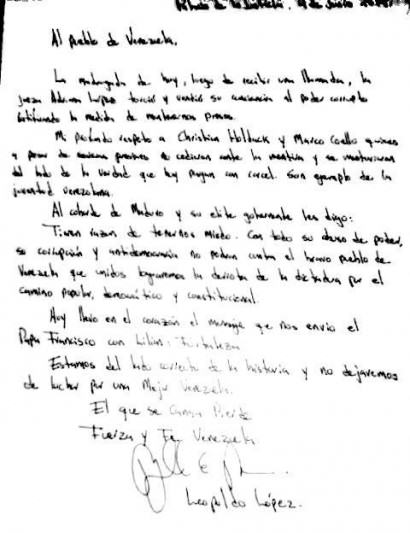 Al Pueblo de Venezuela,
La madrugada de hoy, luego de recibir una llamada, la
jueza Adriana López torció y vendió su conciencia al poder corrupto
ratificando la medida de mantenernos presos.
Mi profundo respeto a Christian Holdack y Marco Coello quienes
a pesar de presiones no cedieron ante la mentira y se mantuvieron
del lado de la verdad que hoy pagan con carcel. Son ejemplo de la
juventud venezolana.
Al cobarde de Maduro y su elite gobernante les digo:
Tienen razon de tenernos miedo. Con todo su abuso de poder,
su corrupción y antidemocracia no podran contra el bravo pueblo de
Venezuela que unidos lograremos la derrota de la dictadura por el
camino popular, democrático y constitucional.
Hoy llevo en el corazón el mensaje que nos envio el
Papa Francisco con Lilian: Fortaleza
Estamos del lado correcto de la historia y no dejaremos
de luchar por una Mejor Venezuela.
El que se Cansa Pierde
Fuerza y Fe, Venezuela
Leopoldo López.